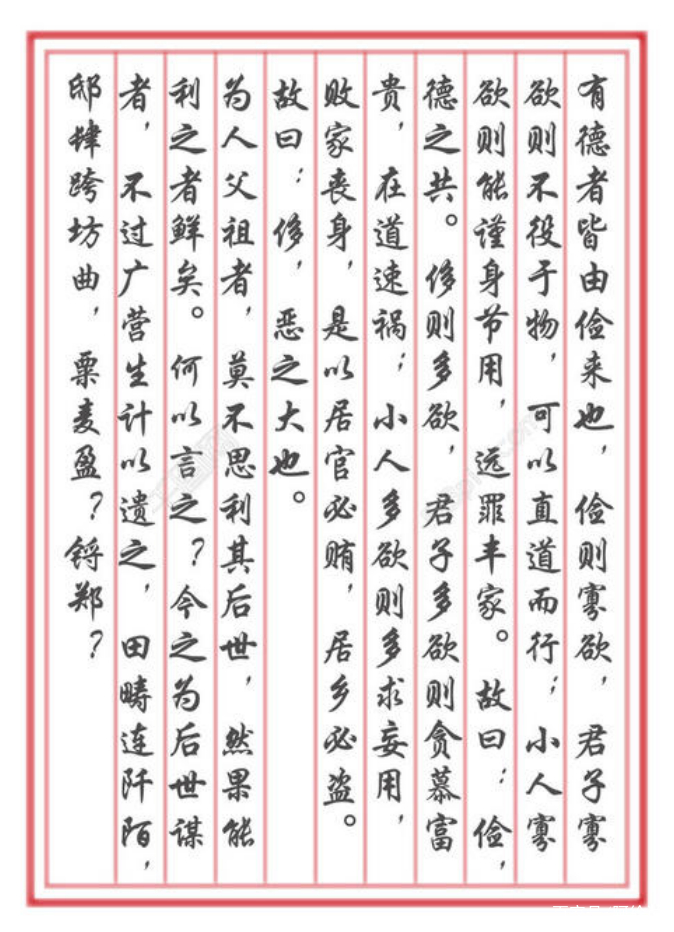 有德者皆由俭来也，俭则寡欲，君子寡
欲则不役于物，可以直道而行；小人寡
欲则能谨身节用，远罪丰家。故曰：俭，
德之共。侈则多欲，君子多欲则贪慕富
贵，在道速祸；小人多欲则多求妄用，
败家丧身，是以居官必贿，居乡必盗。
故曰：侈，恶之大也。
为人父祖者，莫不思利其后世，然果能
利之者鲜矣。何以言之？今之为后世谋
者，不过广营生计以遗之，田畴连阡陌，
邸肆跨坊曲，粟麦盈？锊郑？